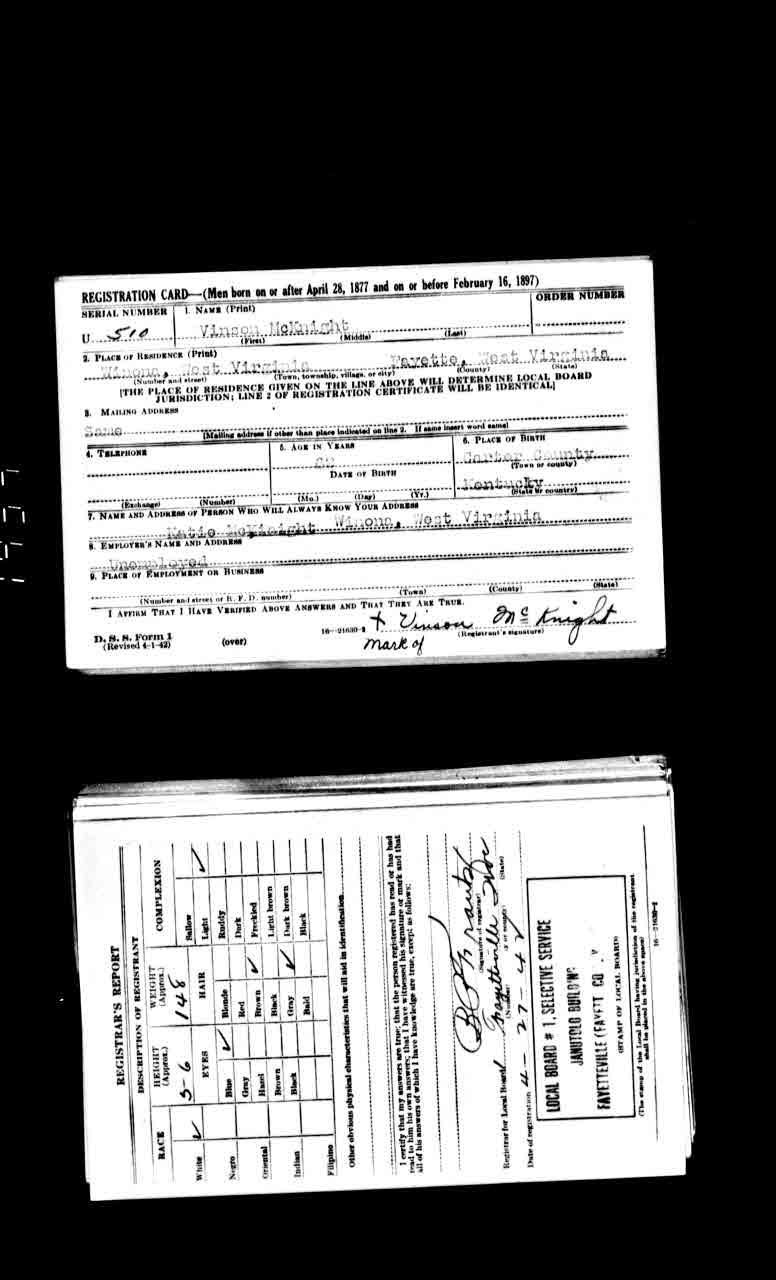 REGISTRATION CARD—(Men born on or after April 28, 1877 and on or before February 16, 1897)
SERIAL NUMBER 1. NAME (Print) ORDER NUMBER
U 510 Vinson McKnight
(First) (Middle) (Last)
2. PLACE OF RESIDENCE (Print)
Winona, West Virginia Fayette, West Virginia
(Number and street) (Town, township, village, or city) (County) (State)
[THE PLACE OF RESIDENCE GIVEN ON THE LINE ABOVE WILL DETERMINE LOCAL BOARD
JURISDICTION; LINE 2 OF REGISTRATION CERTIFICATE WILL BE IDENTICAL]
3. MAILING ADDRESS
Same
[Mailing address if other than place indicated on line 2. If same insert word same]
4. TELEPHONE 5. AGE IN YEARS 6. PLACE OF BIRTH
Carter County
(Town or county)
DATE OF BIRTH
Kentucky
(Exchange) (Number) (Mo.) (Day) (Yr.) (State or country)
7. NAME AND ADDRESS OF PERSON WHO WILL ALWAYS KNOW YOUR ADDRESS
Katie McKnight Winona, West Virginia
8. EMPLOYER'S NAME AND ADDRESS
Unemployed
9. PLACE OF EMPLOYMENT OR BUSINESS
(Number and street or R. F. D. number) (Town) (County) (State)
I AFFIRM THAT I HAVE VERIFIED ABOVE ANSWERS AND THAT THEY ARE TRUE.
D. S. S. Form 1
(Revised 4-1-42) (over) 16—21630-2 X Vinson McKnight
mark of (Registrant's signature)
REGISTRAR'S REPORT
DESCRIPTION OF REGISTRANT
RACE HEIGHT (Approx.) WEIGHT (Approx.) COMPLEXION
5-6 148
EYES HAIR
White ✓ Sallow
Light ✓
Negro Blue ✓ Blonde Ruddy
Gray Red Dark
Oriental Hazel Brown ✓ Freckled
Brown Black Light brown
Indian Black Gray ✓ Dark brown
Bald Black
Filipino
Other obvious physical characteristics that will aid in identification
I certify that my answers are true; that the person registered has read or has had
read to him his own answers; that I have witnessed his signature or mark and that
all of his answers of which I have knowledge are true, except as follows:
(Signature of registrar)
Registrar for Local Board Fayetteville
(Number) (State)
Date of registration 4-27-42
LOCAL BOARD # 1, SELECTIVE SERVICE
FAYETTEVILLE (FAYETT CO
(STAMP OF LOCAL BOARD)
(The stamp of the Local Board having jurisdiction of the registrant
shall be placed in the above space)
16—21630-2